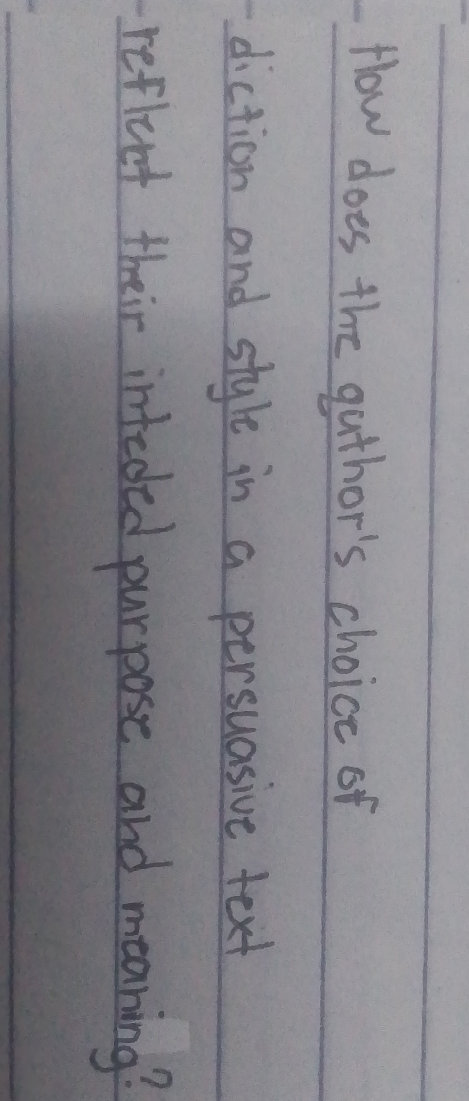 How does the author's choice of
diction and style in a persuasive text
reflect their inteded purpose and meaning?